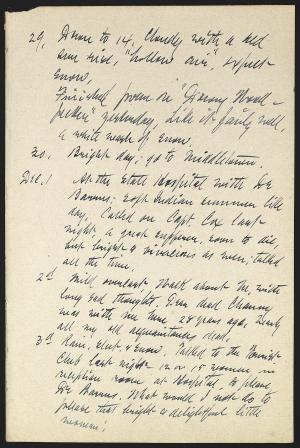 29. Down to 14. Cloudy with a red
sun rise, "hollow air." Expect
snow.
Finished poem on "Downy Wood-
pecker" yesterday. Like it fairly well.
A white wash of snow.
30. Bright day; go to Middletown.
Dec. 1 At the State Hospital with Dr
Barrus; soft Indian summer like
day. Called on Capt. Cox last
night, a great sufferer, soon to die,
but bright & vivacious as ever; talked
all the time.
2d Mild overcast. Walk about M. with
long sad thoughts. Even dead Channy
was with me here, 28 years ago. Nearly
all my old acquaintances dead.
3d Rain, sleet, & snow. Talked to the
Club last night 12 or 15 women in
reception room at Hospital, to please
Dr Barrus. What would I not do to
please that bright & delightful little
woman!